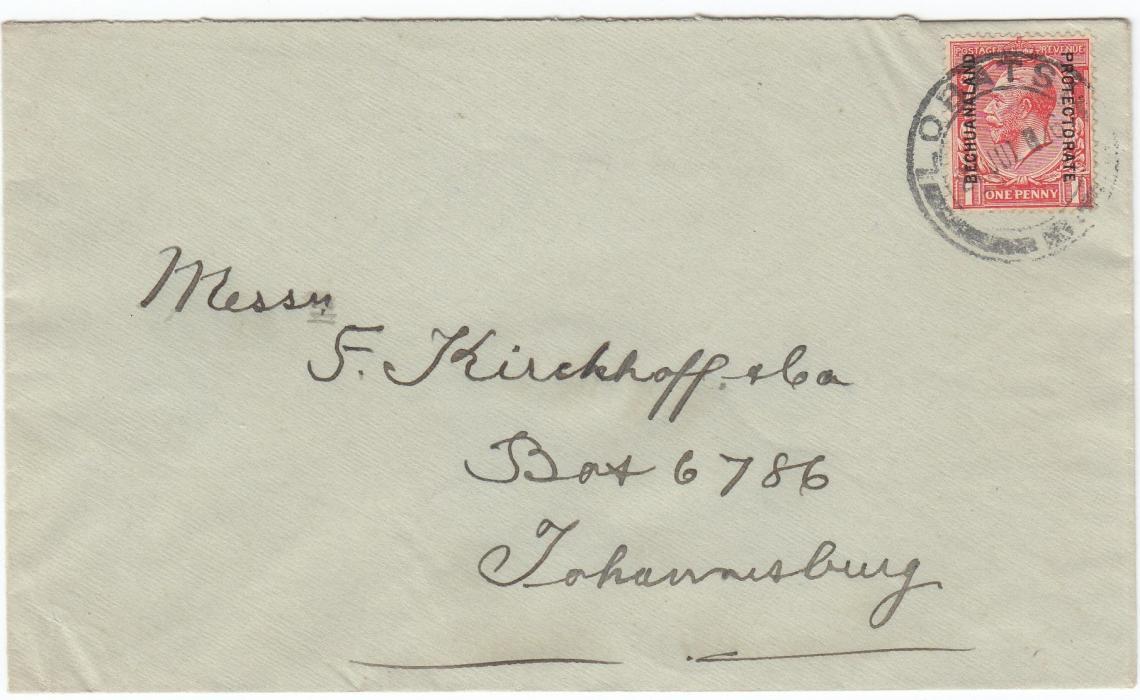 POSTAGE REVENUE
BECHUANALAND PROTECTORATE
1 ONE PENNY 1
LOBATSI
Messrs
F. Kirckhoff. & Co
Box 6786
Johannesburg